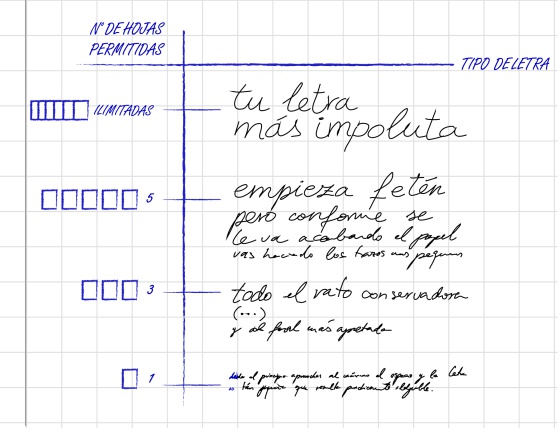 Nº DE HOJAS
PERMITIDAS
TIPO DE LETRA
ILIMITADAS
tu letra
más impoluta
5
empieza fetén
pero conforme se
le va acabando el papel
vas haciendo los trazos más pequeños
3
todo el rato conservadora
(...)
y al final más apretada
1
desde el principio aprovechas al máximo el espacio y la letra
es tan pequeña que resulta prácticamente ilegible.